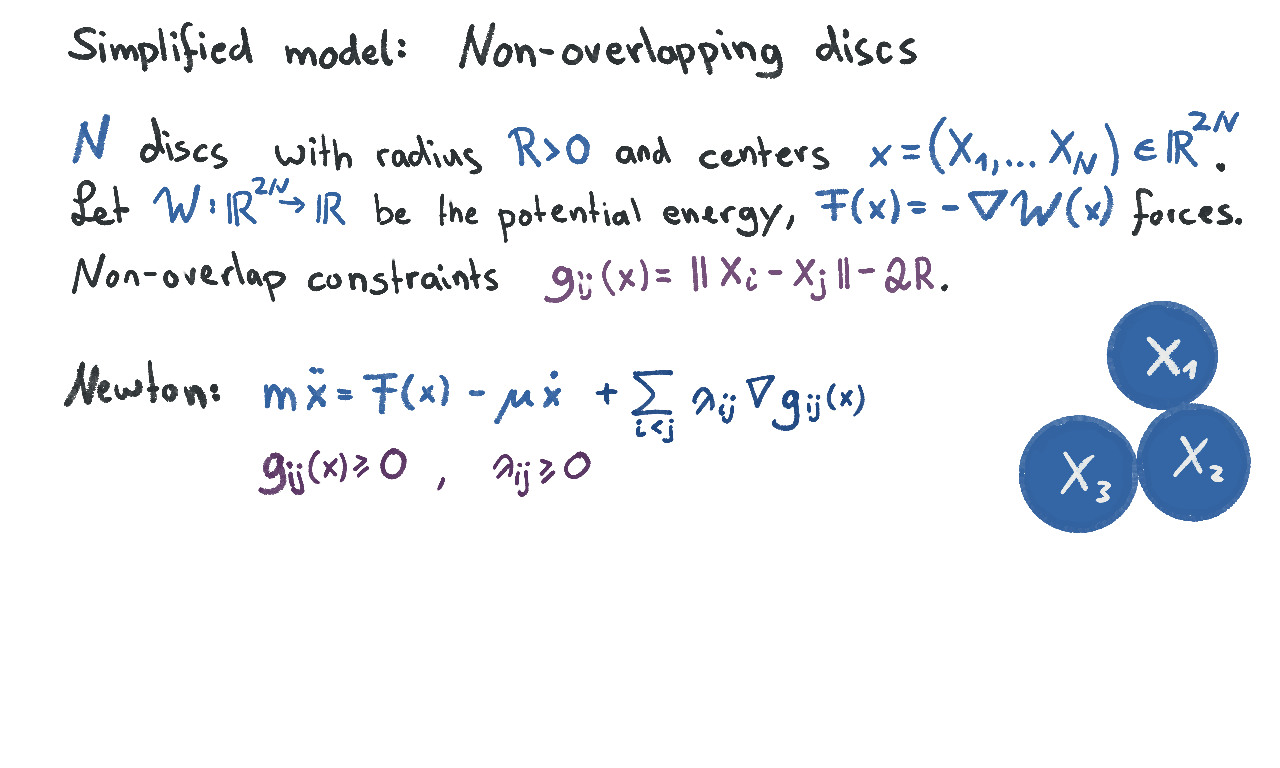 Simplified model: Non-overlapping discs
N discs with radius R>0 and centers x=(X₁,... X_N) ∈ ℝ²ᴺ.
Let W: ℝ²ᴺ → ℝ be the potential energy, F(x) = -∇W(x) forces.
Non-overlap constraints g_ij(x) = ‖X_i - X_j‖ - 2R.
Newton: mẍ = F(x) - μẋ + ∑_{i<j} λ_ij ∇g_ij(x)
g_ij(x) ≥ 0 , λ_ij ≥ 0
X₁
X₂
X₃